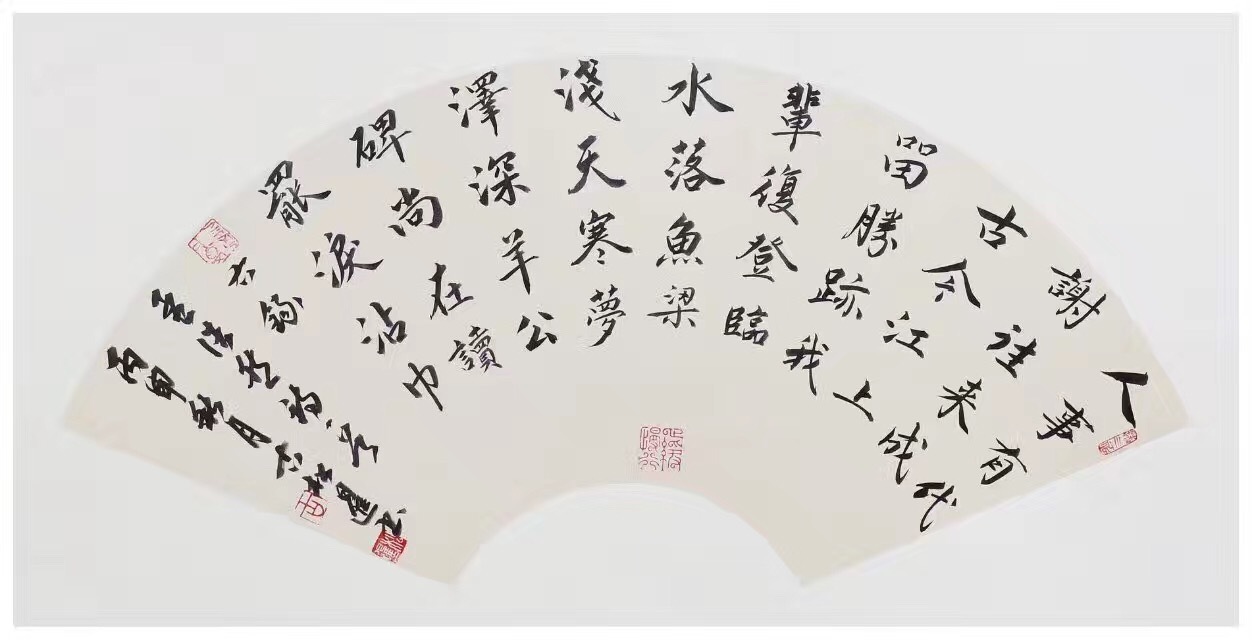 人事有代
謝往来成
古今江上
留勝跡我
輩復登臨
水落魚梁
淺天寒夢
澤深羊公
碑尚在讀
罷淚沾巾
右錄
孟浩然詩
丙申秋月 書